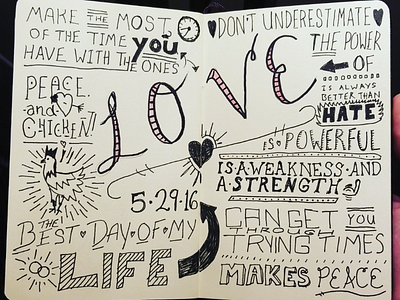 MAKE THE MOST
OF THE TIME you
HAVE WITH THE ONES
LOVE
PEACE
and
CHICKEN!
5·29·16
THE
BEST·DAY·OF·MY
LIFE
DON'T UNDERESTIMATE
THE POWER
OF
IS ALWAYS
BETTER THAN
HATE
IS·POWERFUL
IS·A·WEAKNESS·AND
A·STRENGTH
CAN GET you
THROUGH
TRYING TIMES
MAKES PEACE